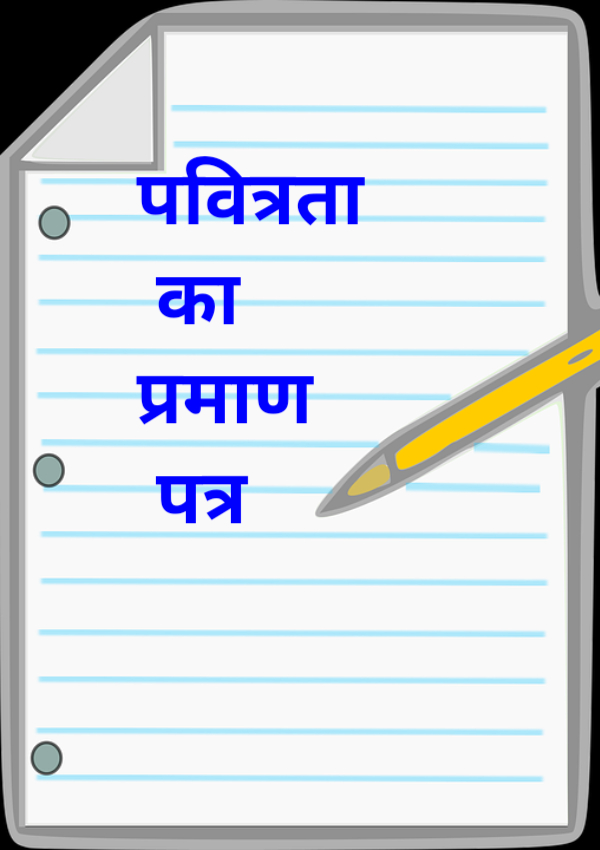 पवित्रता
का
प्रमाण
पत्र